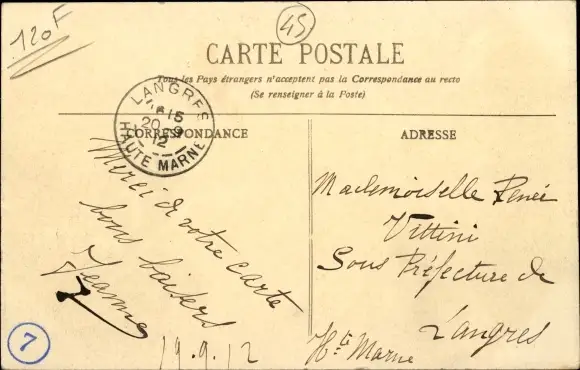 120F
45
CARTE POSTALE
Tous les Pays étrangers n'acceptent pas la Correspondance au recto
(Se renseigner à la Poste)
LANGRES
15
20-9
12
HAUTE MARNE
CORRESPONDANCE
Merci de votre carte
bons baisers
Jeanne
19.9.12
7
ADRESSE
Mademoiselle Renée
Vittini
Sous Préfecture de
Langres
Hte Marne